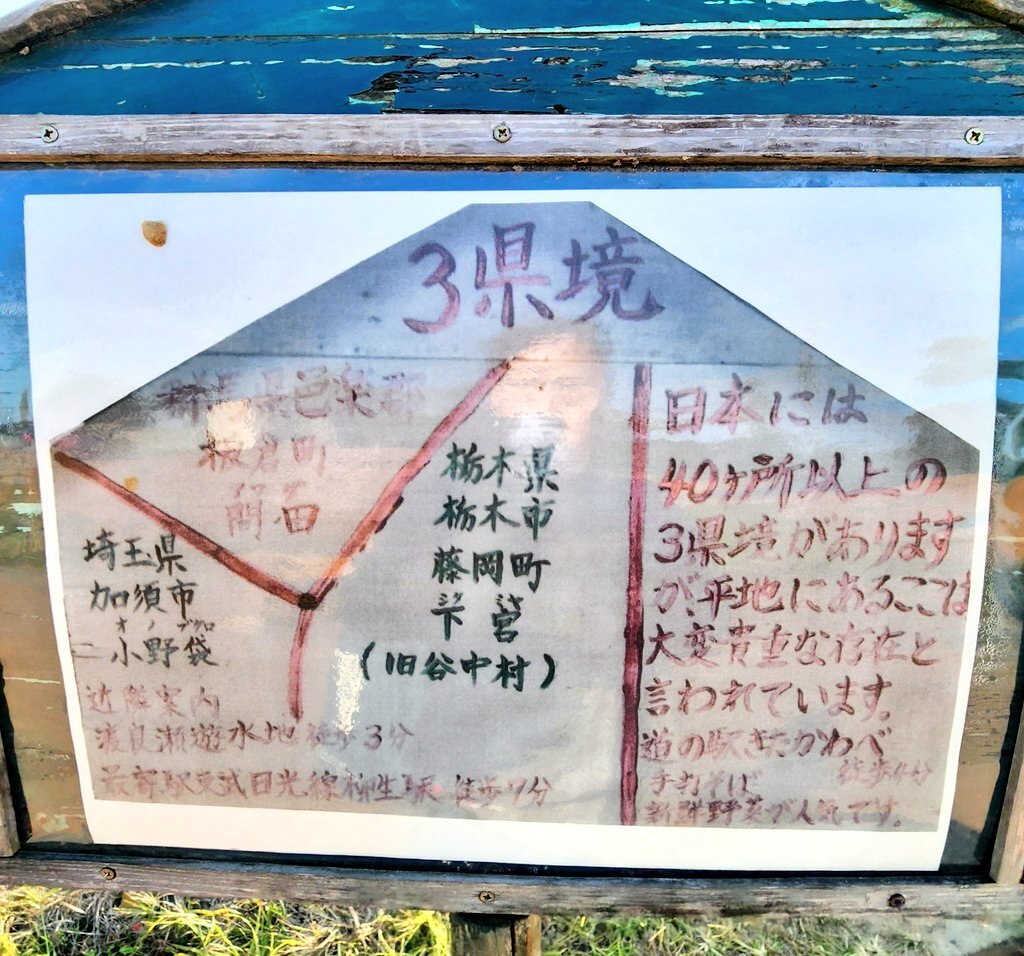 3県境
群馬県邑楽郡
板倉町
海老瀬
栃木県
栃木市
藤岡町
シタ ミヤ
下 宮
(旧谷中村)
埼玉県
加須市
オ ノ ブクロ
小野袋
近隣案内
渡良瀬遊水地 徒歩3分
最寄駅東武日光線柳生駅 徒歩7分
日本には
40ヶ所以上の
3県境があります
が、平地にあることは
大変貴重な存在と
言われています。
道の駅きたかわべ
徒歩4分
手打そば
新鮮野菜が人気です。